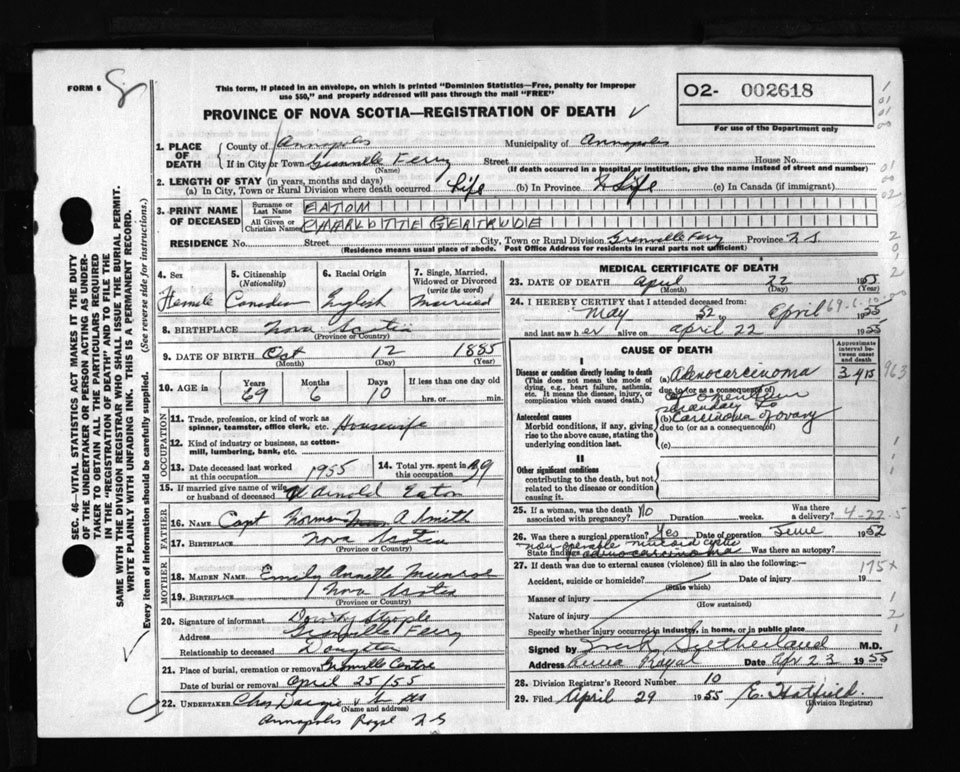 FORM 6
This form, if placed in an envelope, on which is printed "Dominion Statistics—Free, penalty for improper
use $50," and properly addressed will pass through the mail "FREE"
PROVINCE OF NOVA SCOTIA—REGISTRATION OF DEATH
02- 002618
For use of the Department only
SEC. 46—VITAL STATISTICS ACT MAKES IT THE DUTY
OF THE UNDERTAKER OR PERSON ACTING AS UNDER-
TAKER TO OBTAIN ALL THE PARTICULARS REQUIRED
IN THE "REGISTRATION OF DEATH" AND TO FILE THE
SAME WITH THE DIVISION REGISTRAR WHO SHALL ISSUE THE BURIAL PERMIT.
WRITE PLAINLY WITH UNFADING INK. THIS IS A PERMANENT RECORD.
Every item of information should be carefully supplied. (See reverse side for instructions.)
1. PLACE OF DEATH County of Annapolis Municipality of Annapolis
If in City or Town Granville Ferry Street House No.
(Name) (If death occurred in a hospital or institution, give the name instead of street and number)
2. LENGTH OF STAY (in years, months and days)
(a) In City, Town or Rural Division where death occurred Life (b) In Province Life (c) In Canada (if immigrant)
3. PRINT NAME OF DECEASED Surname or Last Name EATON
All Given or Christian Names CHARLOTTE GERTRUDE
RESIDENCE No. Street City, Town or Rural Division Granville Ferry Province N S
(Residence means usual place of abode. Post Office Address for residents in rural parts not sufficient)
4. Sex Female
5. Citizenship (Nationality) Canadian
6. Racial Origin English
7. Single, Married, Widowed or Divorced (write the word) Married
8. BIRTHPLACE Nova Scotia
(Province or Country)
9. DATE OF BIRTH Oct 12 1885
(Month) (Day) (Year)
10. AGE in Years 69 Months 6 Days 10 If less than one day old hrs. or min.
OCCUPATION
11. Trade, profession, or kind of work as spinner, teamster, office clerk, etc. Housewife
12. Kind of industry or business, as cotton-mill, lumbering, bank, etc.
13. Date deceased last worked at this occupation 1955
14. Total yrs. spent in this occupation 39
15. If married give name of wife or husband of deceased Arnold Eaton
FATHER
16. NAME Capt Norman A Smith
17. BIRTHPLACE Nova Scotia
(Province or Country)
MOTHER
18. MAIDEN NAME Emily Annette Munroe
19. BIRTHPLACE Nova Scotia
(Province or Country)
20. Signature of informant
Address Granville Ferry
Relationship to deceased Daughter
21. Place of burial, cremation or removal Granville Centre
Date of burial or removal April 25/55
22. UNDERTAKER Chas
(Name and address)
Annapolis Royal N S
MEDICAL CERTIFICATE OF DEATH
23. DATE OF DEATH April 22 1955
(Month) (Day) (Year)
24. I HEREBY CERTIFY that I attended deceased from:
May 1952 to April 1955
and last saw her alive on april 22 1955
CAUSE OF DEATH
Approximate interval between onset and death
I
Disease or condition directly leading to death
(This does not mean the mode of dying, e.g., heart failure, asthenia, etc. It means the disease, injury, or complication which caused death.)
(a) Adenocarcinoma 3 yrs
due to (or as a consequence of)
of omentum
secondary to
Antecedent causes
Morbid conditions, if any, giving rise to the above cause, stating the underlying condition last.
(b) Carcinoma of ovary
due to (or as a consequence of)
(c)
II
Other significant conditions
contributing to the death, but not related to the disease or condition causing it.
25. If a woman, was the death associated with pregnancy? No Duration weeks. Was there a delivery?
26. Was there a surgical operation? Yes Date of operation June 1952
State findings adenocarcinoma Was there an autopsy?
27. If death was due to external causes (violence) fill in also the following:—
Accident, suicide or homicide? Date of injury 19
(State which)
Manner of injury
(How sustained)
Nature of injury
Specify whether injury occurred in industry, in home, or in public place
Signed by Sutherland M.D.
Address Anna Royal Date Apr 23 1955
28. Division Registrar's Record Number 10
29. Filed April 29 1955 E. Hatfield.
(Division Registrar)